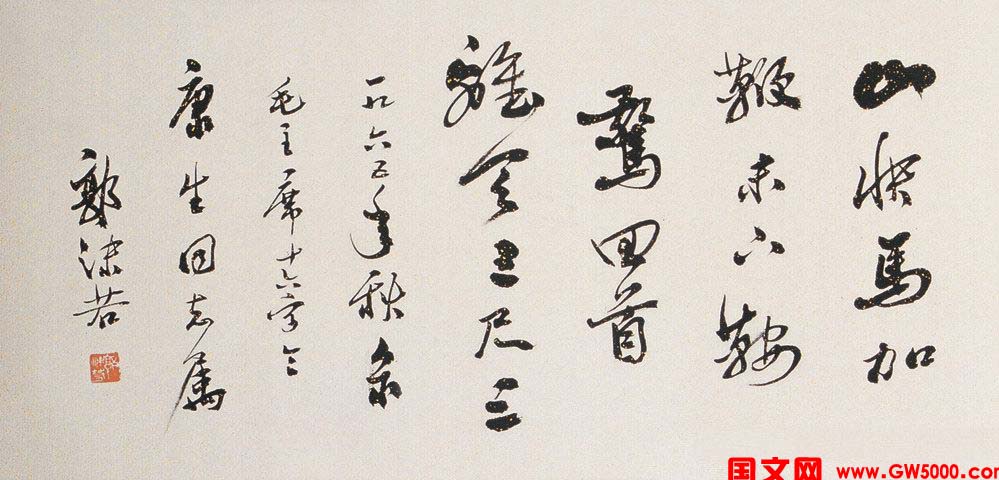 山快馬加
鞭未下鞍
驚回首
離天三尺三
一九六五年秋录
毛主席十六字令
康生同志属
郭沫若
国文网 www.GW5000.com